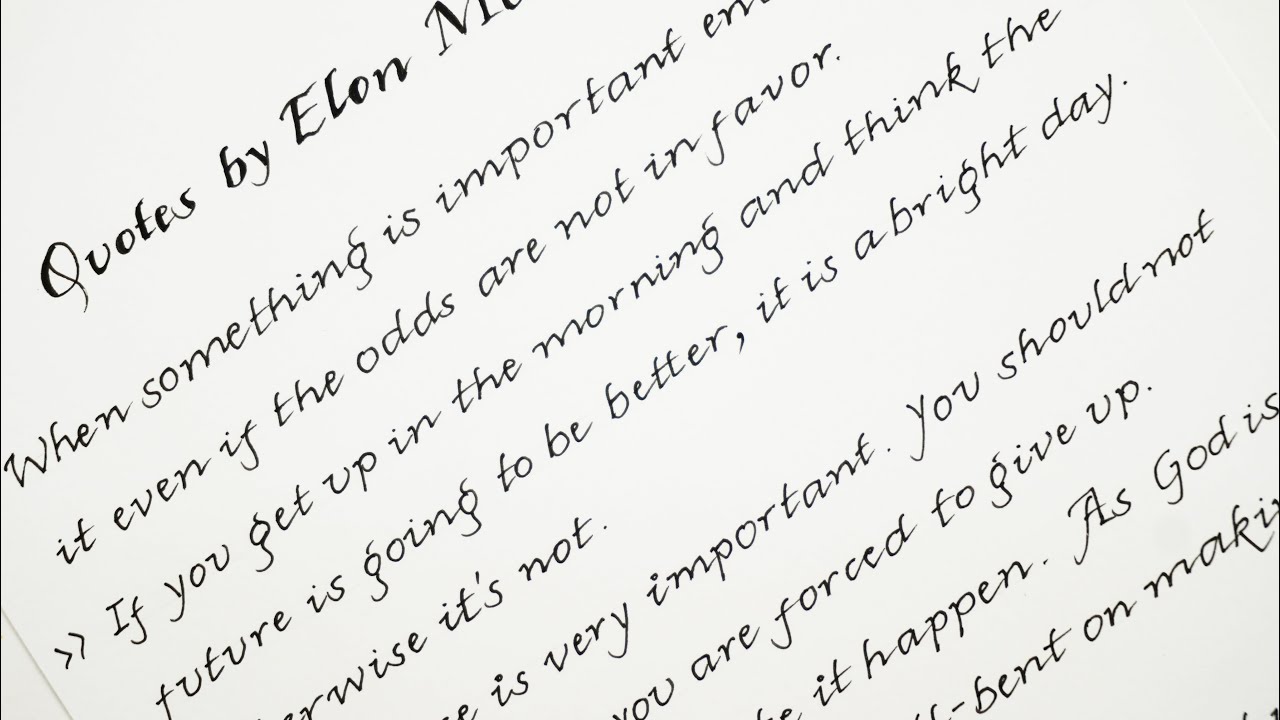 Quotes by Elon
When something is important
it even if the odds are not in favor.
>> If you get up in the morning and think the
future is going to be better, it is a bright day.
it's not.
is very important. You should not
you are forced to give up.
it happen. As God is
bent on